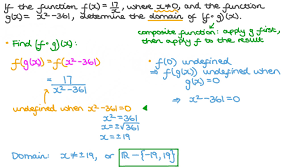 If the function f(x) = 17/x, where x≠0, and the function
g(x) = x²-361, determine the domain of (f∘g)(x).
composite function: apply g first,
then apply f to the result
• Find (f∘g)(x):
f(g(x)) = f(x²-361)
= 17/(x²-361)
undefined when x²-361=0
x²=361
x=±√361
x=±19
• f(0) undefined
⇒ f(g(x)) undefined when
g(x)=0
⇒ x²-361=0
Domain: x≠±19, or ℝ-{-19,19}